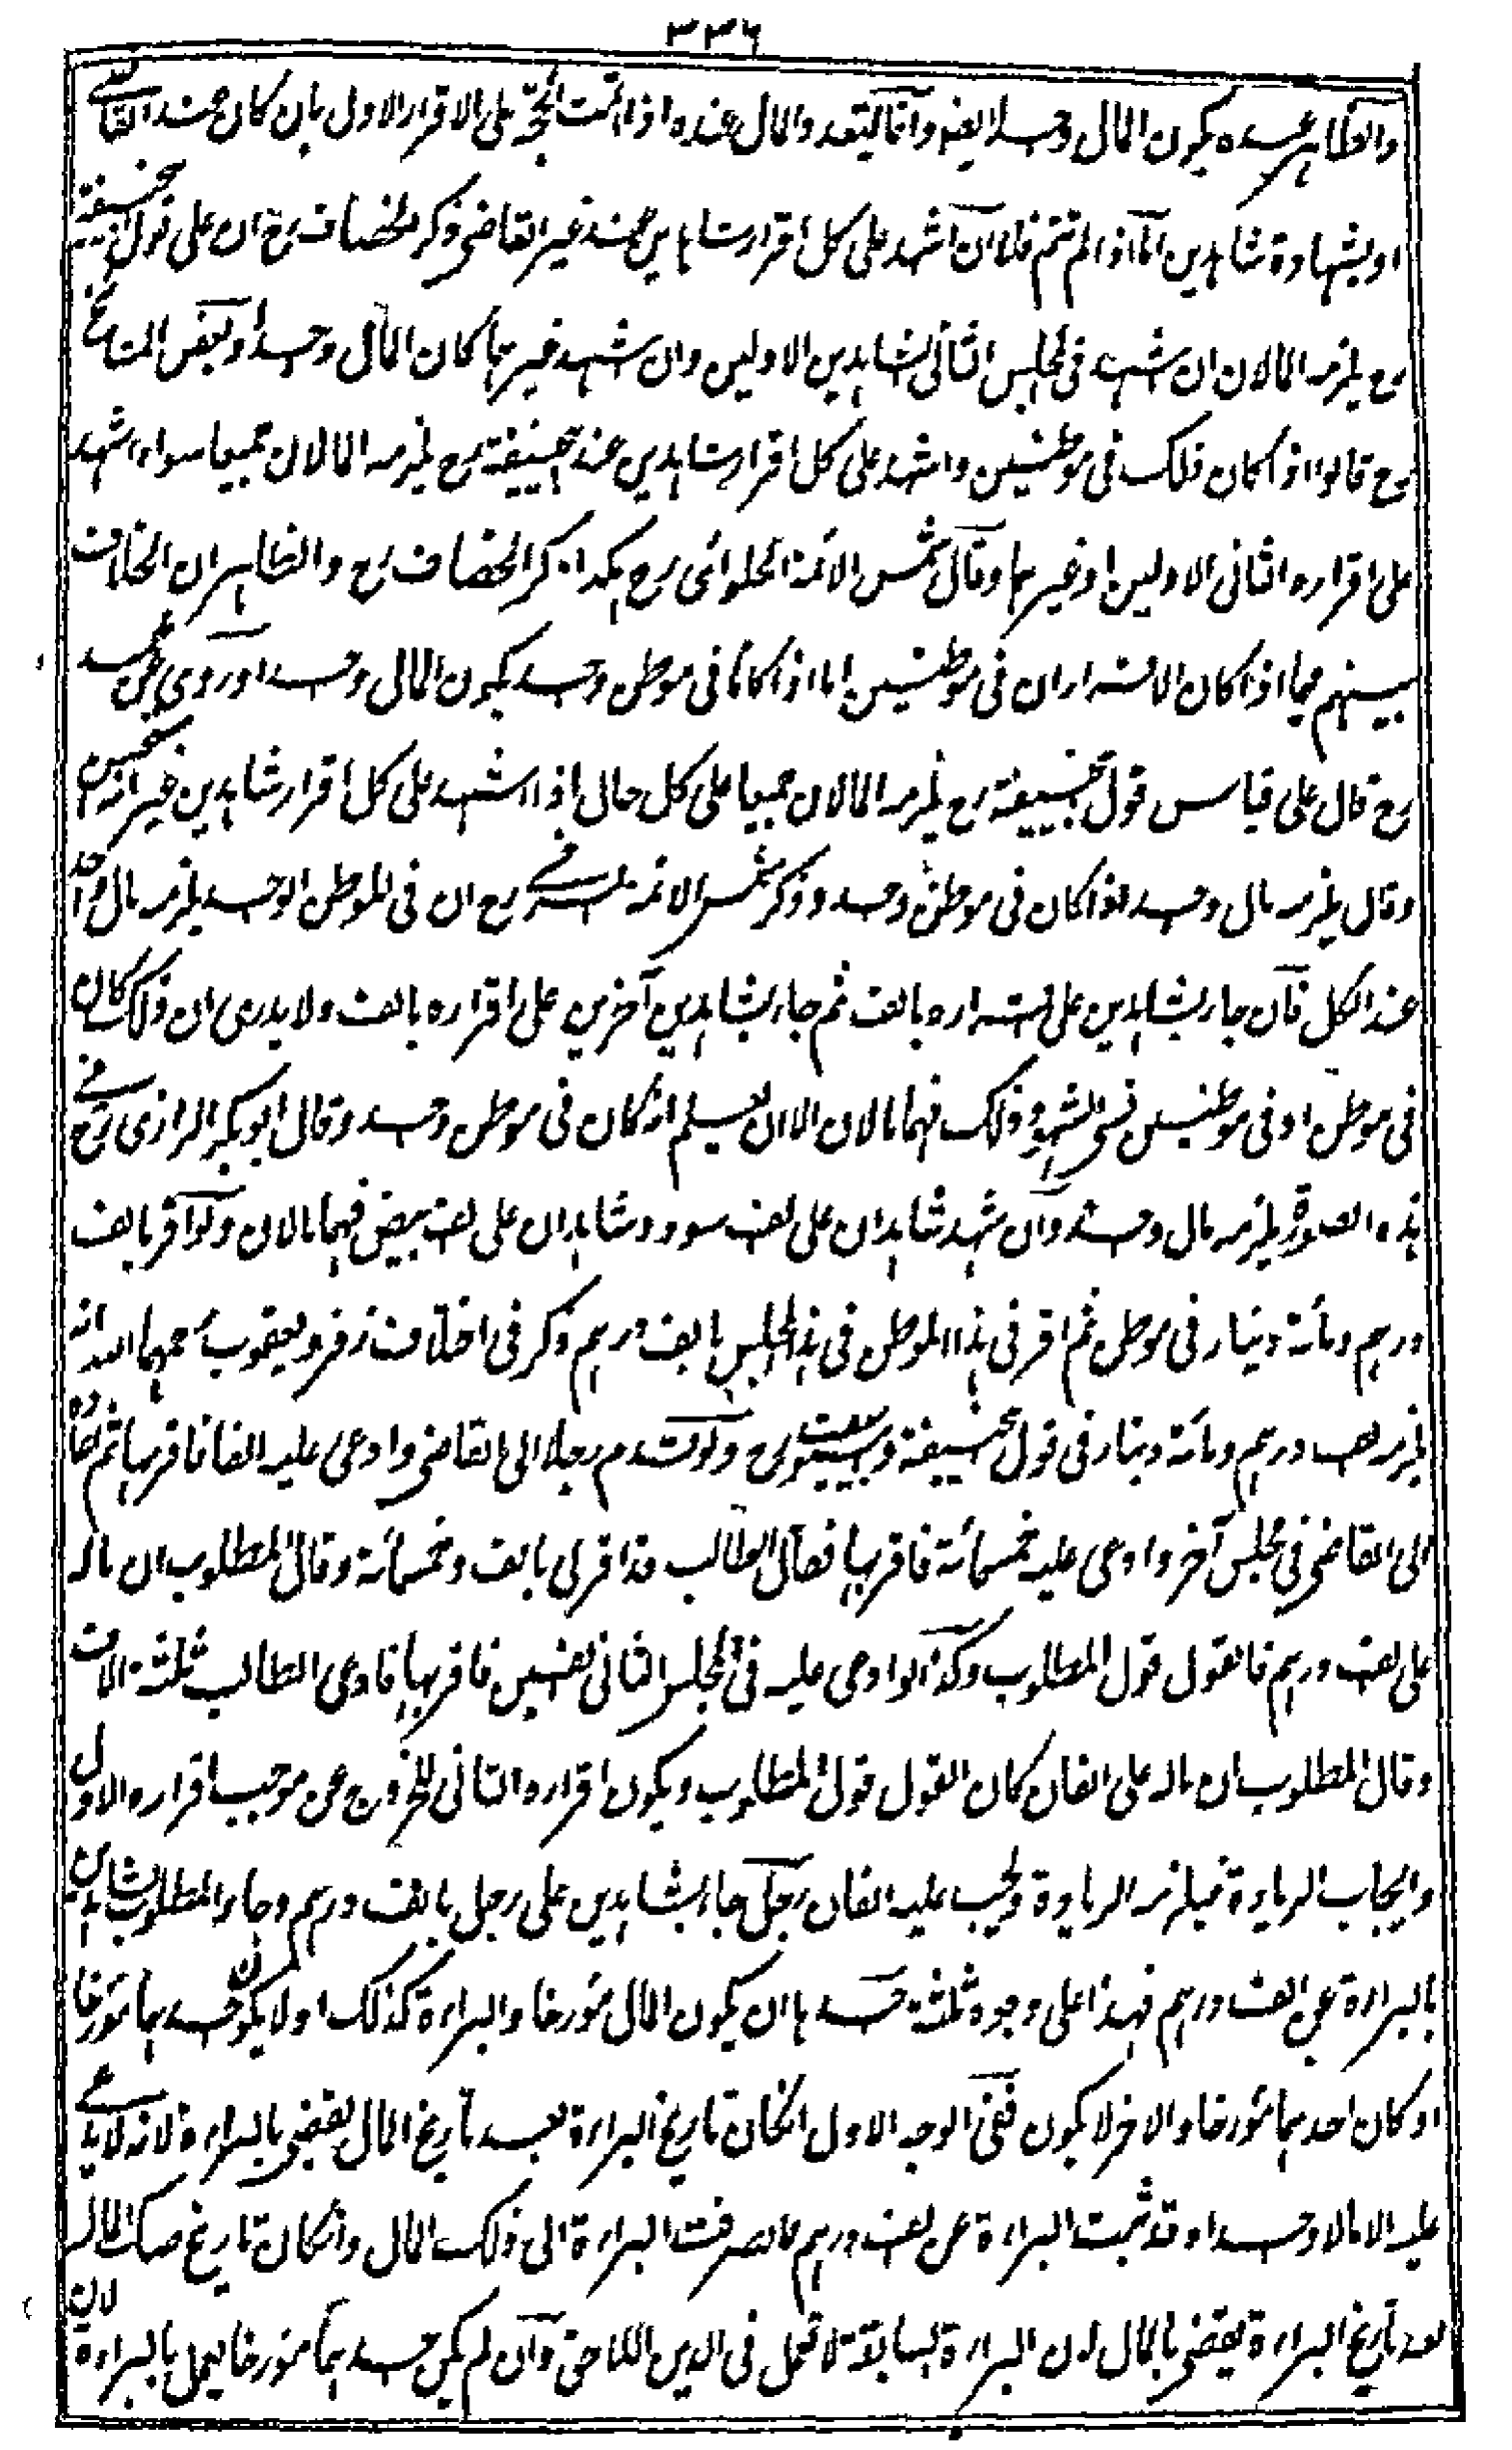 ٣٣٦
والظاهر عنده يكون المال واحدا ايضا وانما يتعدد المال عنده اذا تمت الحجة على الاقرار الاول بان كان عند القاضي
او بشهادة شاهدين اما اذا لم تتم فلا وان اشهد على كل اقرار شاهدين عند غير القاضي ذكر الخصاف رح ان على قول ابيحنيفة
رح يلزمه المالان ان شهد في المجلس الثاني الشاهدين الاولين وان شهد غيرهما كان المال واحدا وبعض المشايخ
رح قالوا اذا كان ذلك في موطنين واشهد على كل اقرار شاهدين عند ابيحنيفة رح يلزمه المالان جميعا سواء اشهد
على اقراره الثاني الاولين او غيرهما وقال شمس الائمة الحلوائى رح هكذا ذكر الخصاف رح والظاهر ان الخلاف
بينهم فيما اذا كان الاقراران في موطنين اما اذا كانا في موطن واحد يكون المال واحدا وروي عن محمد
رح قال على قياس قول ابيحنيفة رح يلزمه المالان جميعا على كل حال اذا اشهد على كل اقرار شاهدين غير انه استحسن
وقال يلزمه مال واحد اذا كان في موطن واحد وذكر شمس الائمة السرخسي رح ان في الموطن الواحد يلزمه مال واحد
عند الكل فان جاء بشاهدين على اقراره بالف ثم جاء بشاهدين آخرين على اقراره بالف ولا يدرى ان ذلك كان
في موطن او في موطنين نسي الشهود ذلك فهما مالان الا ان يعلم انه كان في موطن واحد وقال ابو بكر الرازى رح في
هذه الصورة يلزمه مال واحد وان شهد شاهدان على الف سود وشاهدان على الف بيض فهما مالان ولو اقر بالف
درهم ومائة دينار في موطن ثم اقر في هذا الموطن في هذا المجلس بالف درهم ذكر في اختلاف زفر ويعقوب رحمهما الله انه
يلزمه الف درهم ومائة دينار في قول ابيحنيفة وابييوسف رح ولو قدم رجلا الى القاضي وادعى عليه الفا فاقر بها ثم اعاده
الى القاضي في مجلس آخر وادعى عليه خمسمائة فاقر بها فقال الطالب قد اقر لى بالف وخمسمائة وقال المطلوب ان ماله
على الف درهم فالقول قول المطلوب وكذا لو ادعى عليه في المجلس الثاني الفين فاقر بها فادعى الطالب ثلثة الاف
وقال المطلوب ان ماله على الفان كان القول قول المطلوب ويكون اقراره الثاني للخروج عن موجب اقراره الاول
وايجاب الزيادة فيلزمه الزيادة ويجب عليه الفان رجل جاء بشاهدين على رجل بالف درهم وجاء المطلوب بشاهدين
بالبراءة عن الف درهم فهذا على وجوه ثلثة احدها ان يكون المال مؤرخا والبراءة كذلك او لا يكون احدهما مؤرخا
او كان احدهما مؤرخا والاخر لا يكون ففي الوجه الاول انكان تاريخ البراءة بعد تاريخ المال يقضى بالبراءة لانه لا يدعي
عليه الا مالا واحدا وقد ثبت البراءة عن الف درهم فانصرفت البراءة الى ذلك المال وانكان تاريخ صك المال
بعد تاريخ البراءة يقضى بالمال لان البراءة السابقة لا تعمل في الدين اللاحق وان لم يكن احدهما مؤرخا يعمل بالبراءة لان